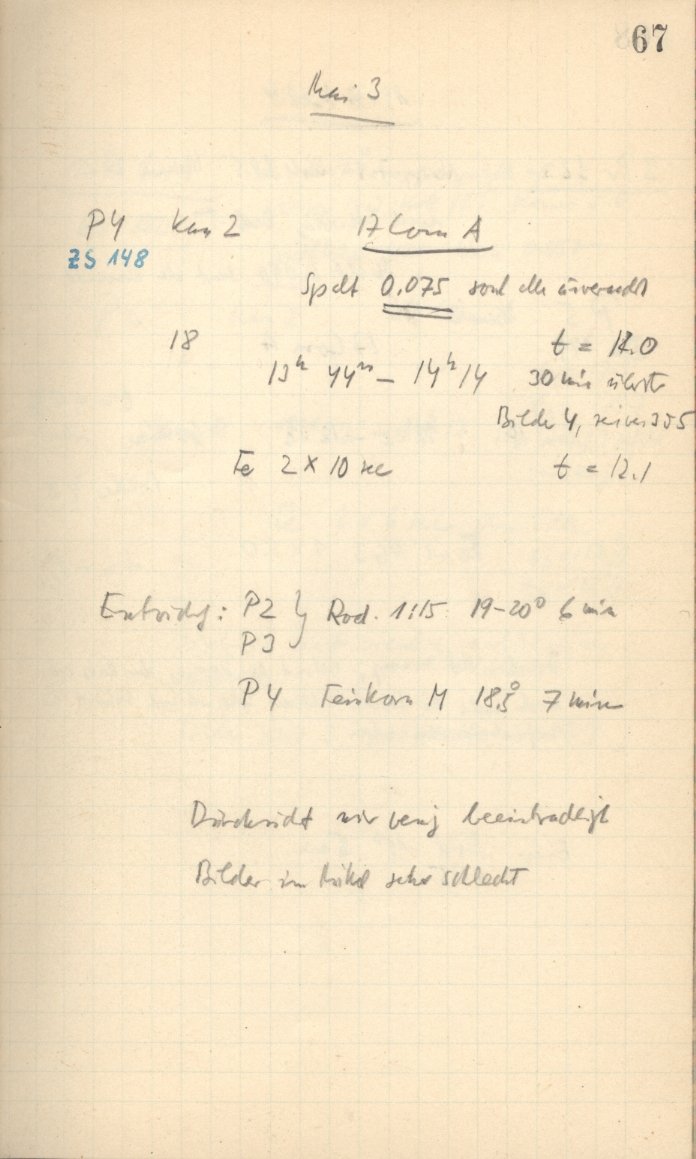 67
Mai 3
P4 Kam 2 17 Com A
ZS 148
Spalt 0.075 sonst alles unverändert
18 t = 12.0
13h 44m – 14h 14 30 min
Bilder 4,
Fe 2 × 10 sec t = 12.1
P2 } Rod. 1:15 19–20° 6 min
P3
P4 Feinkorn M 18.5° 7 min
Durchsicht nur wenig beeinträchtigt
Bilder im sehr schlecht